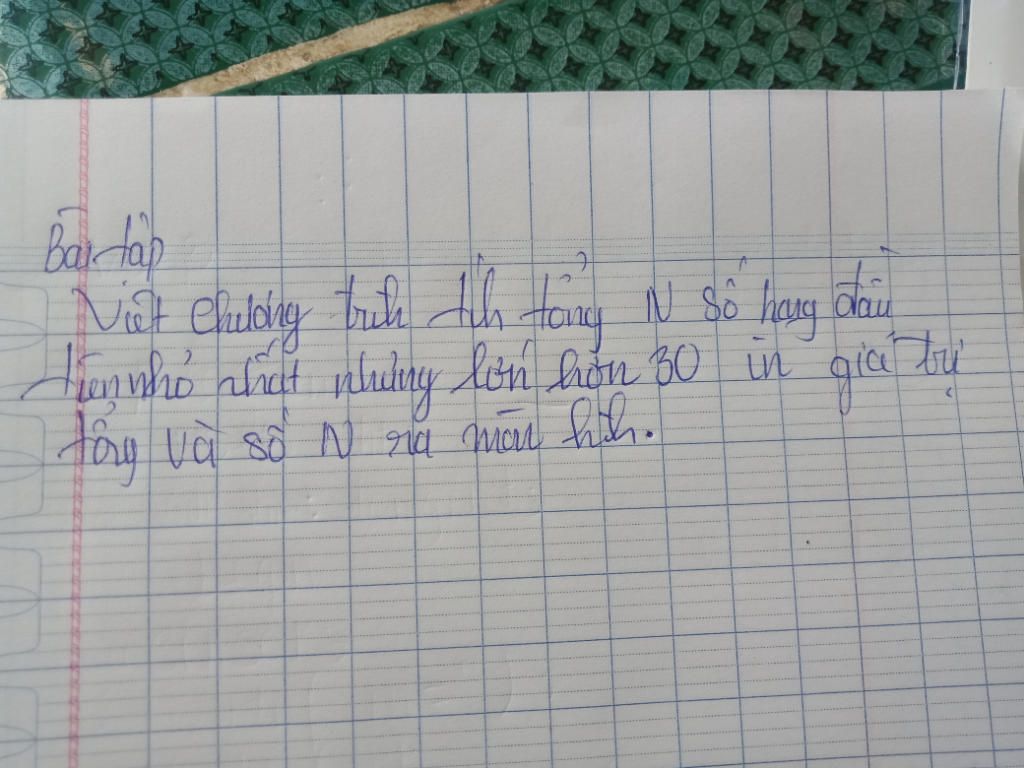 Bài tập
Viết chương trình tính tổng N số hạng đầu
tiên nhỏ nhất nhưng lớn hơn 30 in giá trị
tổng và số N ra màn hình.